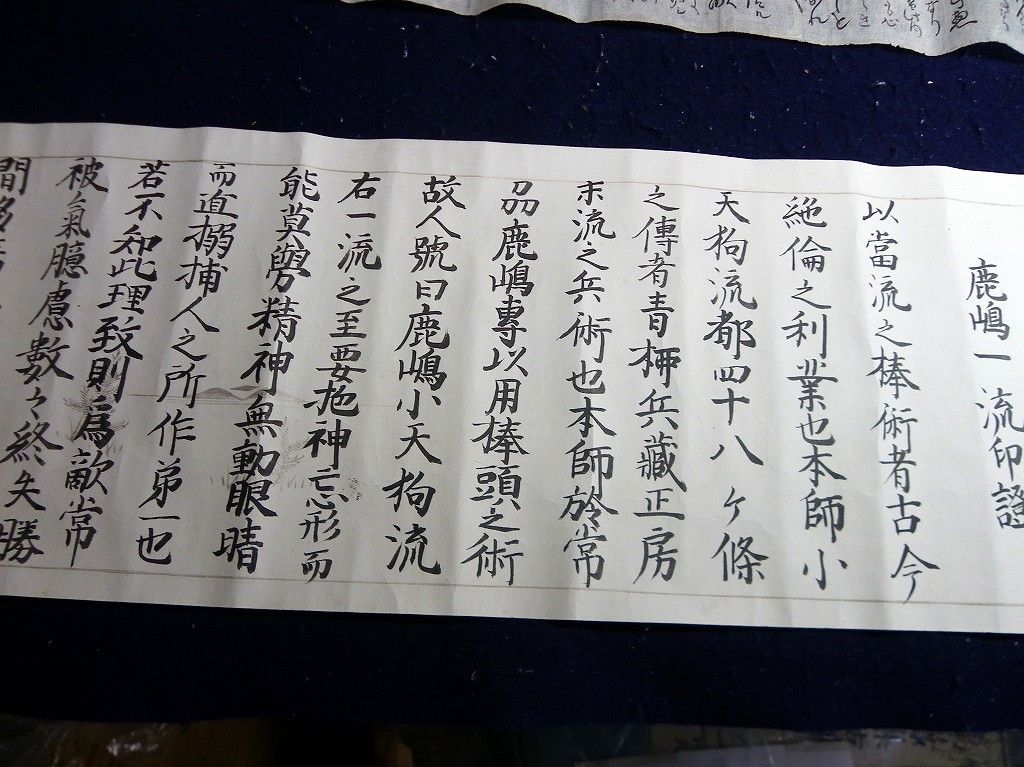 鹿嶋一流印證
以當流之棒術者古今
絶倫之利業也本師小
天狗流都四十八ヶ條
之傳者青柳兵藏正房
末流之兵術也本師於常
刕鹿嶋專以用棒頭之術
故人號曰鹿嶋小天狗流
右一流之至要抱神忘形而
能莫勞精神無動眼晴
而道搦捕人之所作第一也
若不和此理致則爲敵常
被氣臆慮數々終失勝
間